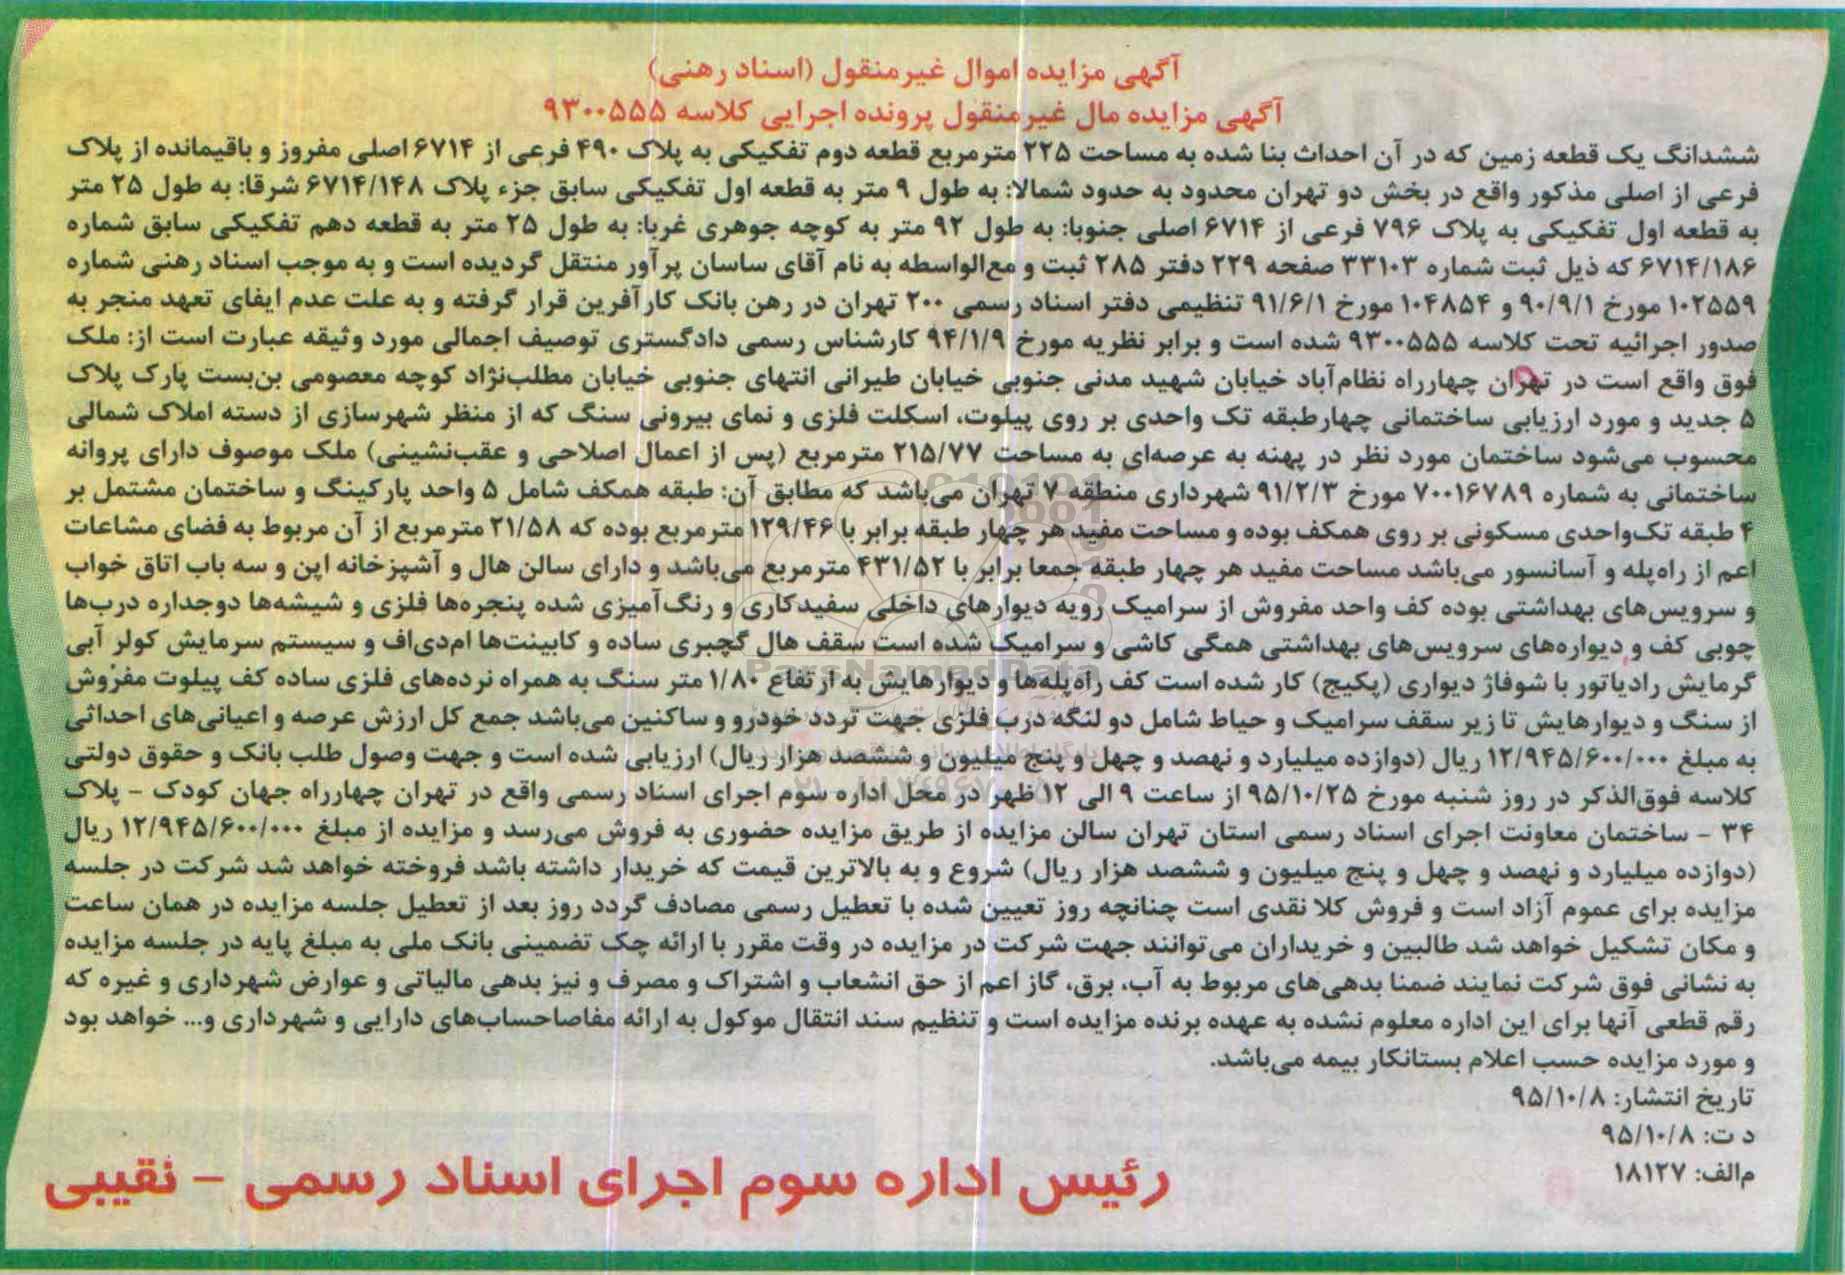 آگهی مزایده اموال غیرمنقول (اسناد رهنی)
آگهی مزایده مال غیرمنقول پرونده اجرایی کلاسه ۹۳۰۰۵۵۵
ششدانگ یک قطعه زمین که در آن احداث بنا شده به مساحت ۲۲۵ مترمربع قطعه دوم تفکیکی به پلاک ۴۹۰ فرعی از ۶۷۱۴ اصلی مفروز و باقیمانده از پلاک
فرعی از اصلی مذکور واقع در بخش دو تهران محدود به حدود شمالا: به طول ۹ متر به قطعه اول تفکیکی سابق جزء پلاک ۶۷۱۴/۱۴۸ شرقا: به طول ۲۵ متر
به قطعه اول تفکیکی به پلاک ۷۹۶ فرعی از ۶۷۱۴ اصلی جنوبا: به طول ۹۲ متر به کوچه جوهری غربا: به طول ۲۵ متر به قطعه دهم تفکیکی سابق شماره
۶۷۱۴/۱۸۶ که ذیل ثبت شماره ۳۳۱۰۳ صفحه ۲۲۹ دفتر ۲۸۵ ثبت و مع‌الواسطه به نام آقای ساسان پرآور منتقل گردیده است و به موجب اسناد رهنی شماره
۱۰۲۵۵۹ مورخ ۹۰/۹/۱ و ۱۰۴۸۵۴ مورخ ۹۱/۶/۱ تنظیمی دفتر اسناد رسمی ۲۰۰ تهران در رهن بانک کارآفرین قرار گرفته و به علت عدم ایفای تعهد منجر به
صدور اجرائیه تحت کلاسه ۹۳۰۰۵۵۵ شده است و برابر نظریه مورخ ۹۴/۱/۹ کارشناس رسمی دادگستری توصیف اجمالی مورد وثیقه عبارت است از: ملک
فوق واقع است در تهران چهارراه نظام‌آباد خیابان شهید مدنی جنوبی خیابان طیرانی انتهای جنوبی خیابان مطلب‌نژاد کوچه معصومی بن‌بست پارک پلاک
۵ جدید و مورد ارزیابی ساختمانی چهارطبقه تک واحدی بر روی پیلوت، اسکلت فلزی و نمای بیرونی سنگ که از منظر شهرسازی از دسته املاک شمالی
محسوب می‌شود ساختمان مورد نظر در پهنه به عرصه‌ای به مساحت ۲۱۵/۷۷ مترمربع (پس از اعمال اصلاحی و عقب‌نشینی) ملک موصوف دارای پروانه
ساختمانی به شماره ۷۰۰۱۶۷۸۹ مورخ ۹۱/۲/۳ شهرداری منطقه ۷ تهران می‌باشد که مطابق آن: طبقه همکف شامل ۵ واحد پارکینگ و ساختمان مشتمل بر
۴ طبقه تک‌واحدی مسکونی بر روی همکف بوده و مساحت مفید هر چهار طبقه برابر با ۱۲۹/۴۶ مترمربع بوده که ۲۱/۵۸ مترمربع از آن مربوط به فضای مشاعات
اعم از راه‌پله و آسانسور می‌باشد مساحت مفید هر چهار طبقه جمعا برابر با ۴۳۱/۵۲ مترمربع می‌باشد و دارای سالن هال و آشپزخانه اپن و سه باب اتاق خواب
و سرویس‌های بهداشتی بوده کف واحد مفروش از سرامیک رویه دیوارهای داخلی سفیدکاری و رنگ‌آمیزی شده پنجره‌ها فلزی و شیشه‌ها دوجداره درب‌ها
چوبی کف و دیواره‌های سرویس‌های بهداشتی همگی کاشی و سرامیک شده است سقف هال گچبری ساده و کابینت‌ها ام‌دی‌اف و سیستم سرمایش کولر آبی
گرمایش رادیاتور با شوفاژ دیواری (پکیج) کار شده است کف راه‌پله‌ها و دیوارهایش به ارتفاع ۱/۸۰ متر سنگ به همراه نرده‌های فلزی ساده کف پیلوت مفروش
از سنگ و دیوارهایش تا زیر سقف سرامیک و حیاط شامل دو لنگه درب فلزی جهت تردد خودرو و ساکنین می‌باشد جمع کل ارزش عرصه و اعیانی‌های احداثی
به مبلغ ۱۲/۹۴۵/۶۰۰/۰۰۰ ریال (دوازده میلیارد و نهصد و چهل و پنج میلیون و ششصد هزار ریال) ارزیابی شده است و جهت وصول طلب بانک و حقوق دولتی
کلاسه فوق‌الذکر در روز شنبه مورخ ۹۵/۱۰/۲۵ از ساعت ۹ الی ۱۲ ظهر در محل اداره سوم اجرای اسناد رسمی واقع در تهران چهارراه جهان کودک - پلاک
۳۴ - ساختمان معاونت اجرای اسناد رسمی استان تهران سالن مزایده از طریق مزایده حضوری به فروش می‌رسد و مزایده از مبلغ ۱۲/۹۴۵/۶۰۰/۰۰۰ ریال
(دوازده میلیارد و نهصد و چهل و پنج میلیون و ششصد هزار ریال) شروع و به بالاترین قیمت که خریدار داشته باشد فروخته خواهد شد شرکت در جلسه
مزایده برای عموم آزاد است و فروش کلا نقدی است چنانچه روز تعیین شده با تعطیل رسمی مصادف گردد روز بعد از تعطیل جلسه مزایده در همان ساعت
و مکان تشکیل خواهد شد طالبین و خریداران می‌توانند جهت شرکت در مزایده در وقت مقرر با ارائه چک تضمینی بانک ملی به مبلغ پایه در جلسه مزایده
به نشانی فوق شرکت نمایند ضمنا بدهی‌های مربوط به آب، برق، گاز اعم از حق انشعاب و اشتراک و مصرف و نیز بدهی مالیاتی و عوارض شهرداری و غیره که
رقم قطعی آنها برای این اداره معلوم نشده به عهده برنده مزایده است و تنظیم سند انتقال موکول به ارائه مفاصاحساب‌های دارایی و شهرداری و... خواهد بود
و مورد مزایده حسب اعلام بستانکار بیمه می‌باشد.
تاریخ انتشار: ۹۵/۱۰/۸
د ت: ۹۵/۱۰/۸
م‌الف: ۱۸۱۲۷
رئیس اداره سوم اجرای اسناد رسمی - نقیبی
ParsNamadData